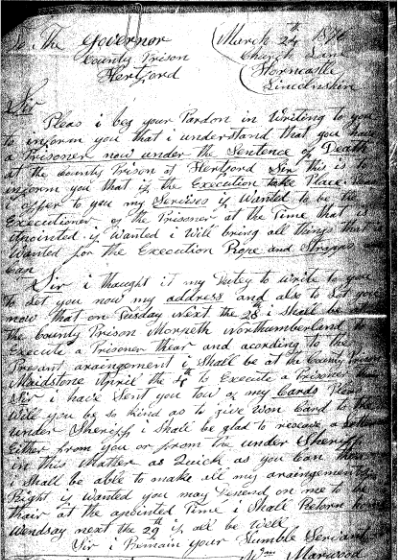 To The Governor
County Prison
Hertford
March 24th 1876
Church Lane
Horncastle
Lincolnshire
Sir
Pleas i beg your Pardon in Writing to you
to inform you that i understand that you have
a Prisoner now under the Sentence of Death
at the County Prison at Hertford Sir this is to
inform you that if the Execution take Place
i offer to you my Servises if Wanted to be the
Executioner of the Prisoner at the Time that is
apointed if Wanted i Will bring all things that is
Wanted for the Execution Rope and Straps
Sir i thought it my Dutey to Write to you
to let you now my address and also to let you
now that on Tusday Next the 28 i shall be
the County Prison Morpeth Northumberland to
Execute a Prisoner thear and acording to the
Present araingement i shall be at the County Prison
Maidstone April the 4th to Execute a Prisoner
Sir i have Sent you tow of my Cards Pleas
Will you be so kind as to give won Card to the
under Sheriff i shall be glad to receive a Letter
Either from you or from the under Sheriff
in this matter as Quick as you Can then
i shall be able to make all my araingements
Right is wanted you may Depend on me to be
thair at the apointed Time i shall Return home
Wendsay next the 29 if all be Well
Sir i Remain your Humble Servant
Wm Marwood